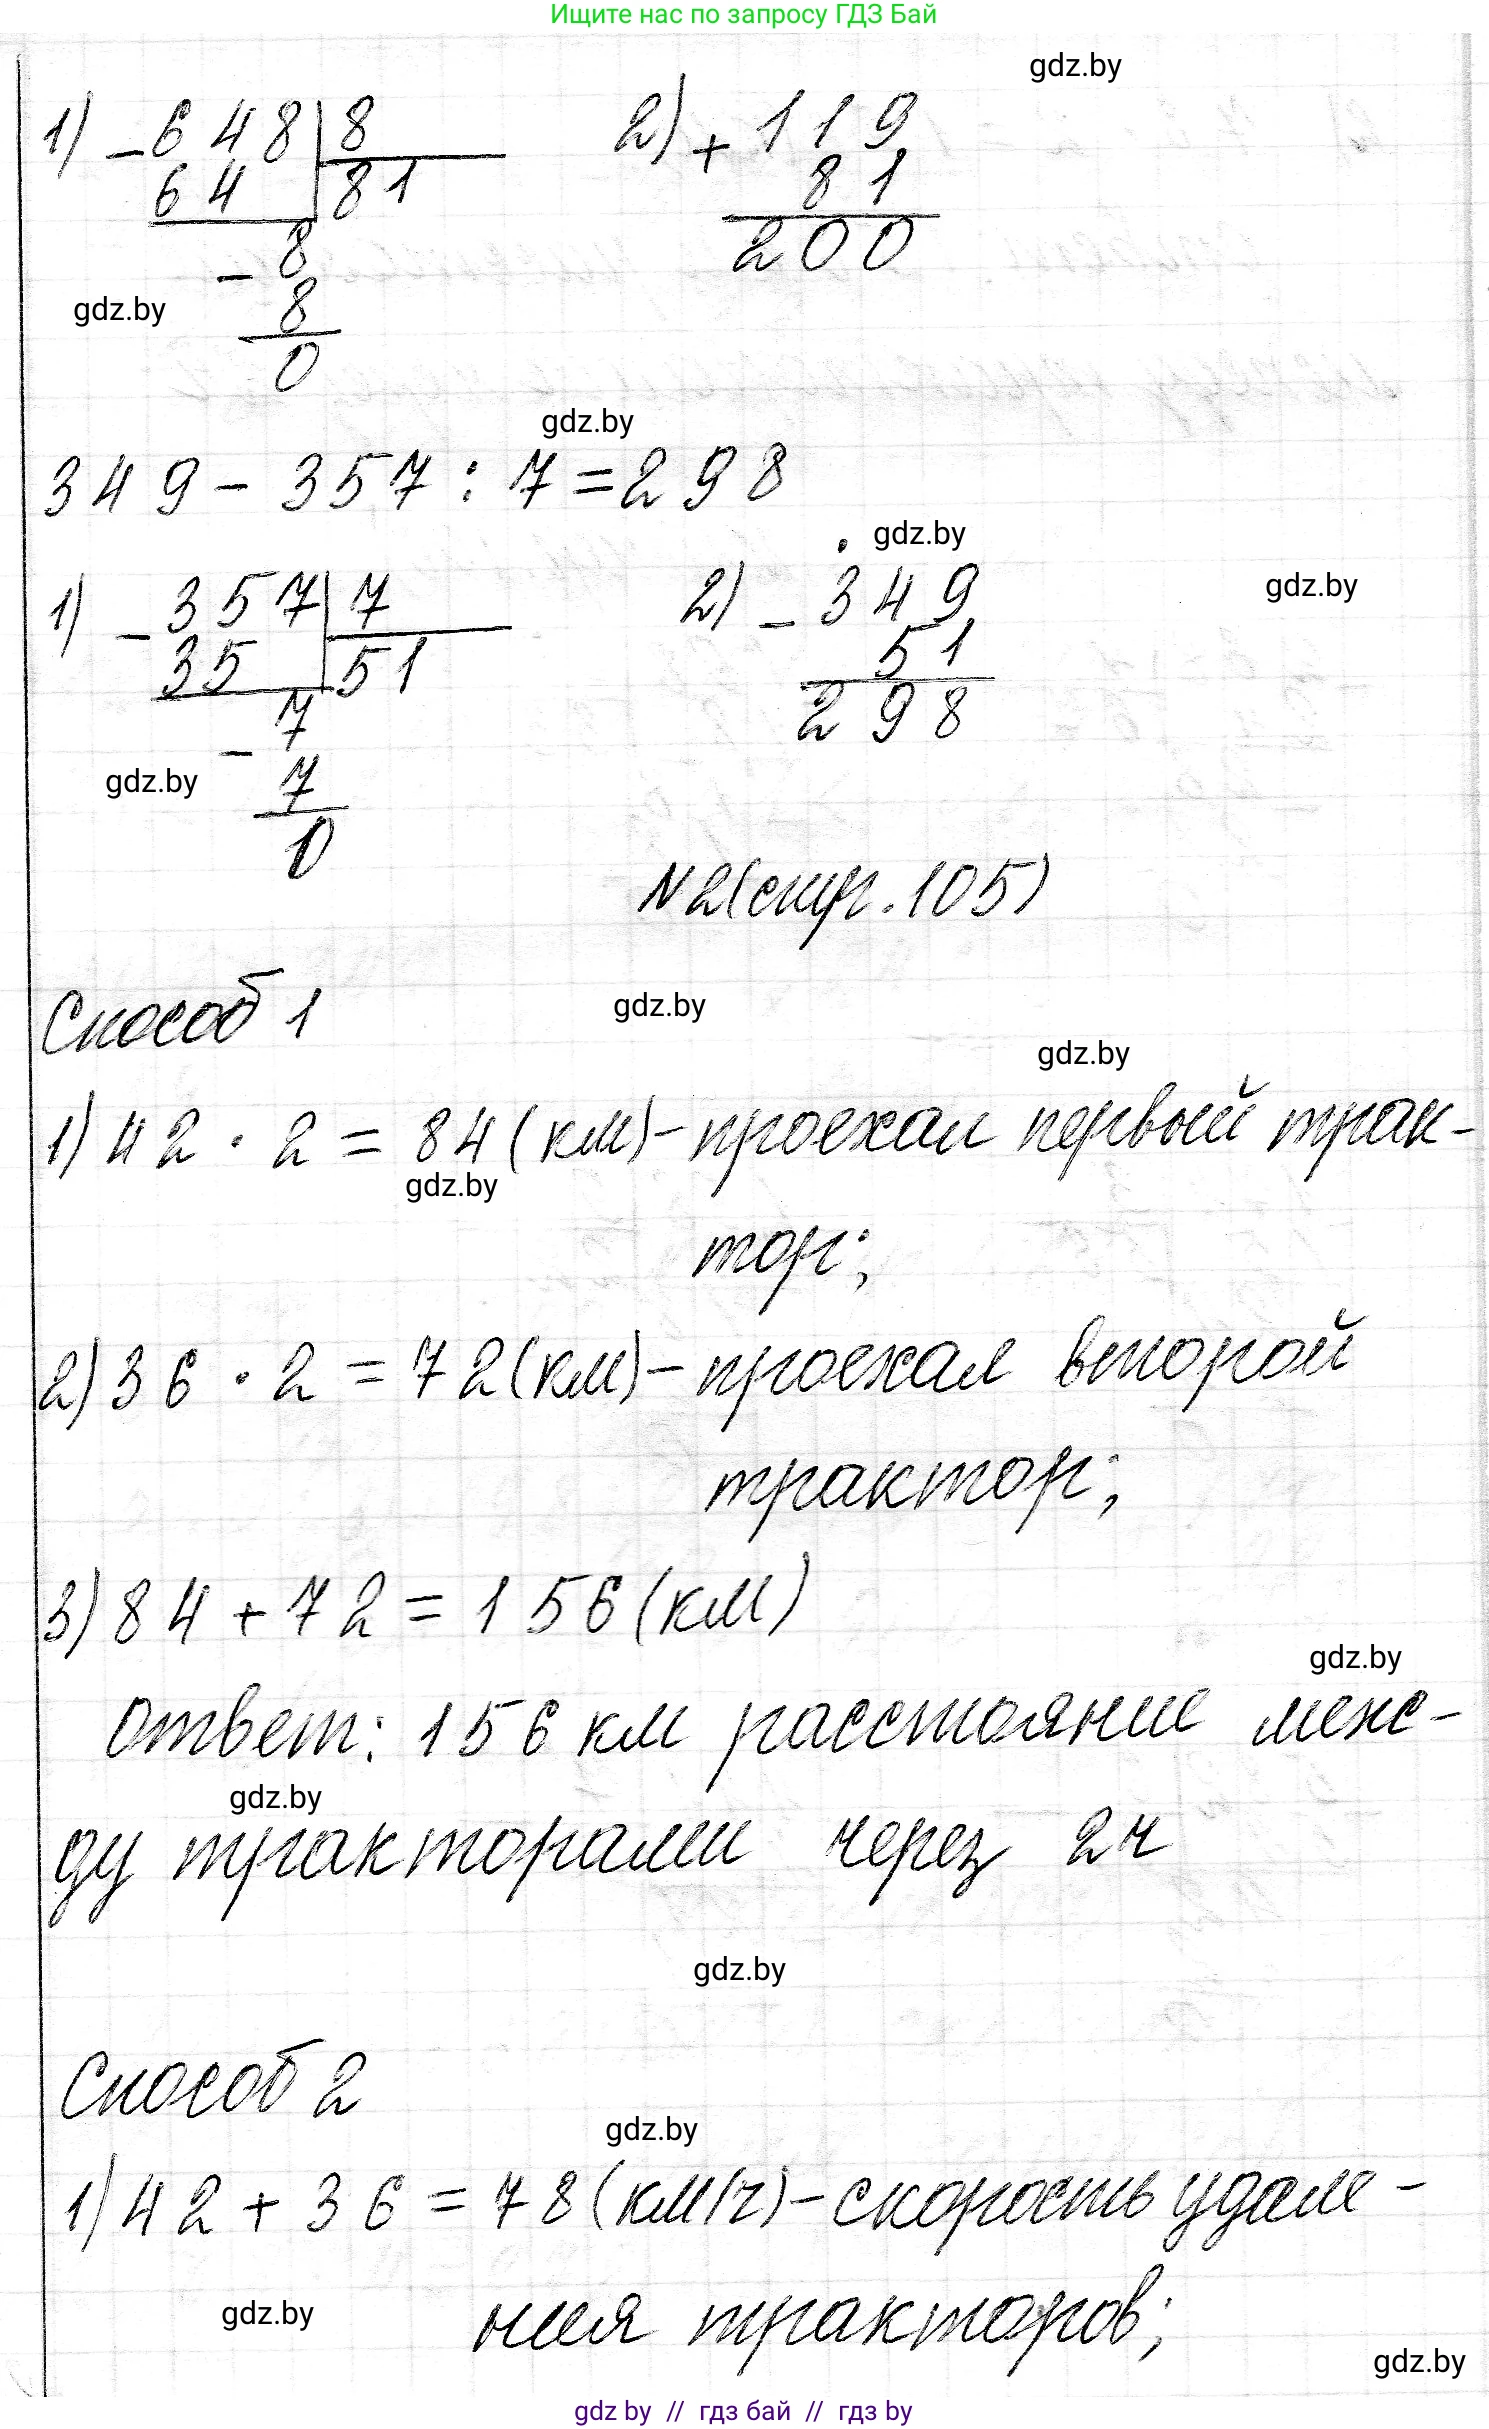 Ищите нас по запросу ГДЗ Бай
gdz.by
1) - 648 | 8      2) + 119
64 | 81      81
- 8      200
gdz.by
8
0
gdz.by
349 - 357 : 7 = 298
gdz.by
gdz.by
1) - 357 | 7      2) - 349
35 | 51      51
- 7      298
gdz.by
7
0
N2(стр. 105)
Способ 1
gdz.by
gdz.by
1) 42 · 2 = 84 (км) - проехал первый трак-
gdz.by
тор;
2) 36 · 2 = 72 (км) - проехал второй
трактор;
3) 84 + 72 = 156 (км)
gdz.by
Ответ: 156 км расстояние меж-
gdz.by
ду тракторами через 2ч
gdz.by
Способ 2
gdz.by
1) 42 + 36 = 78 (км/ч) - скорость удале-
gdz.by
ния тракторов;
gdz.by
gdz by // гдз бай // гдз by